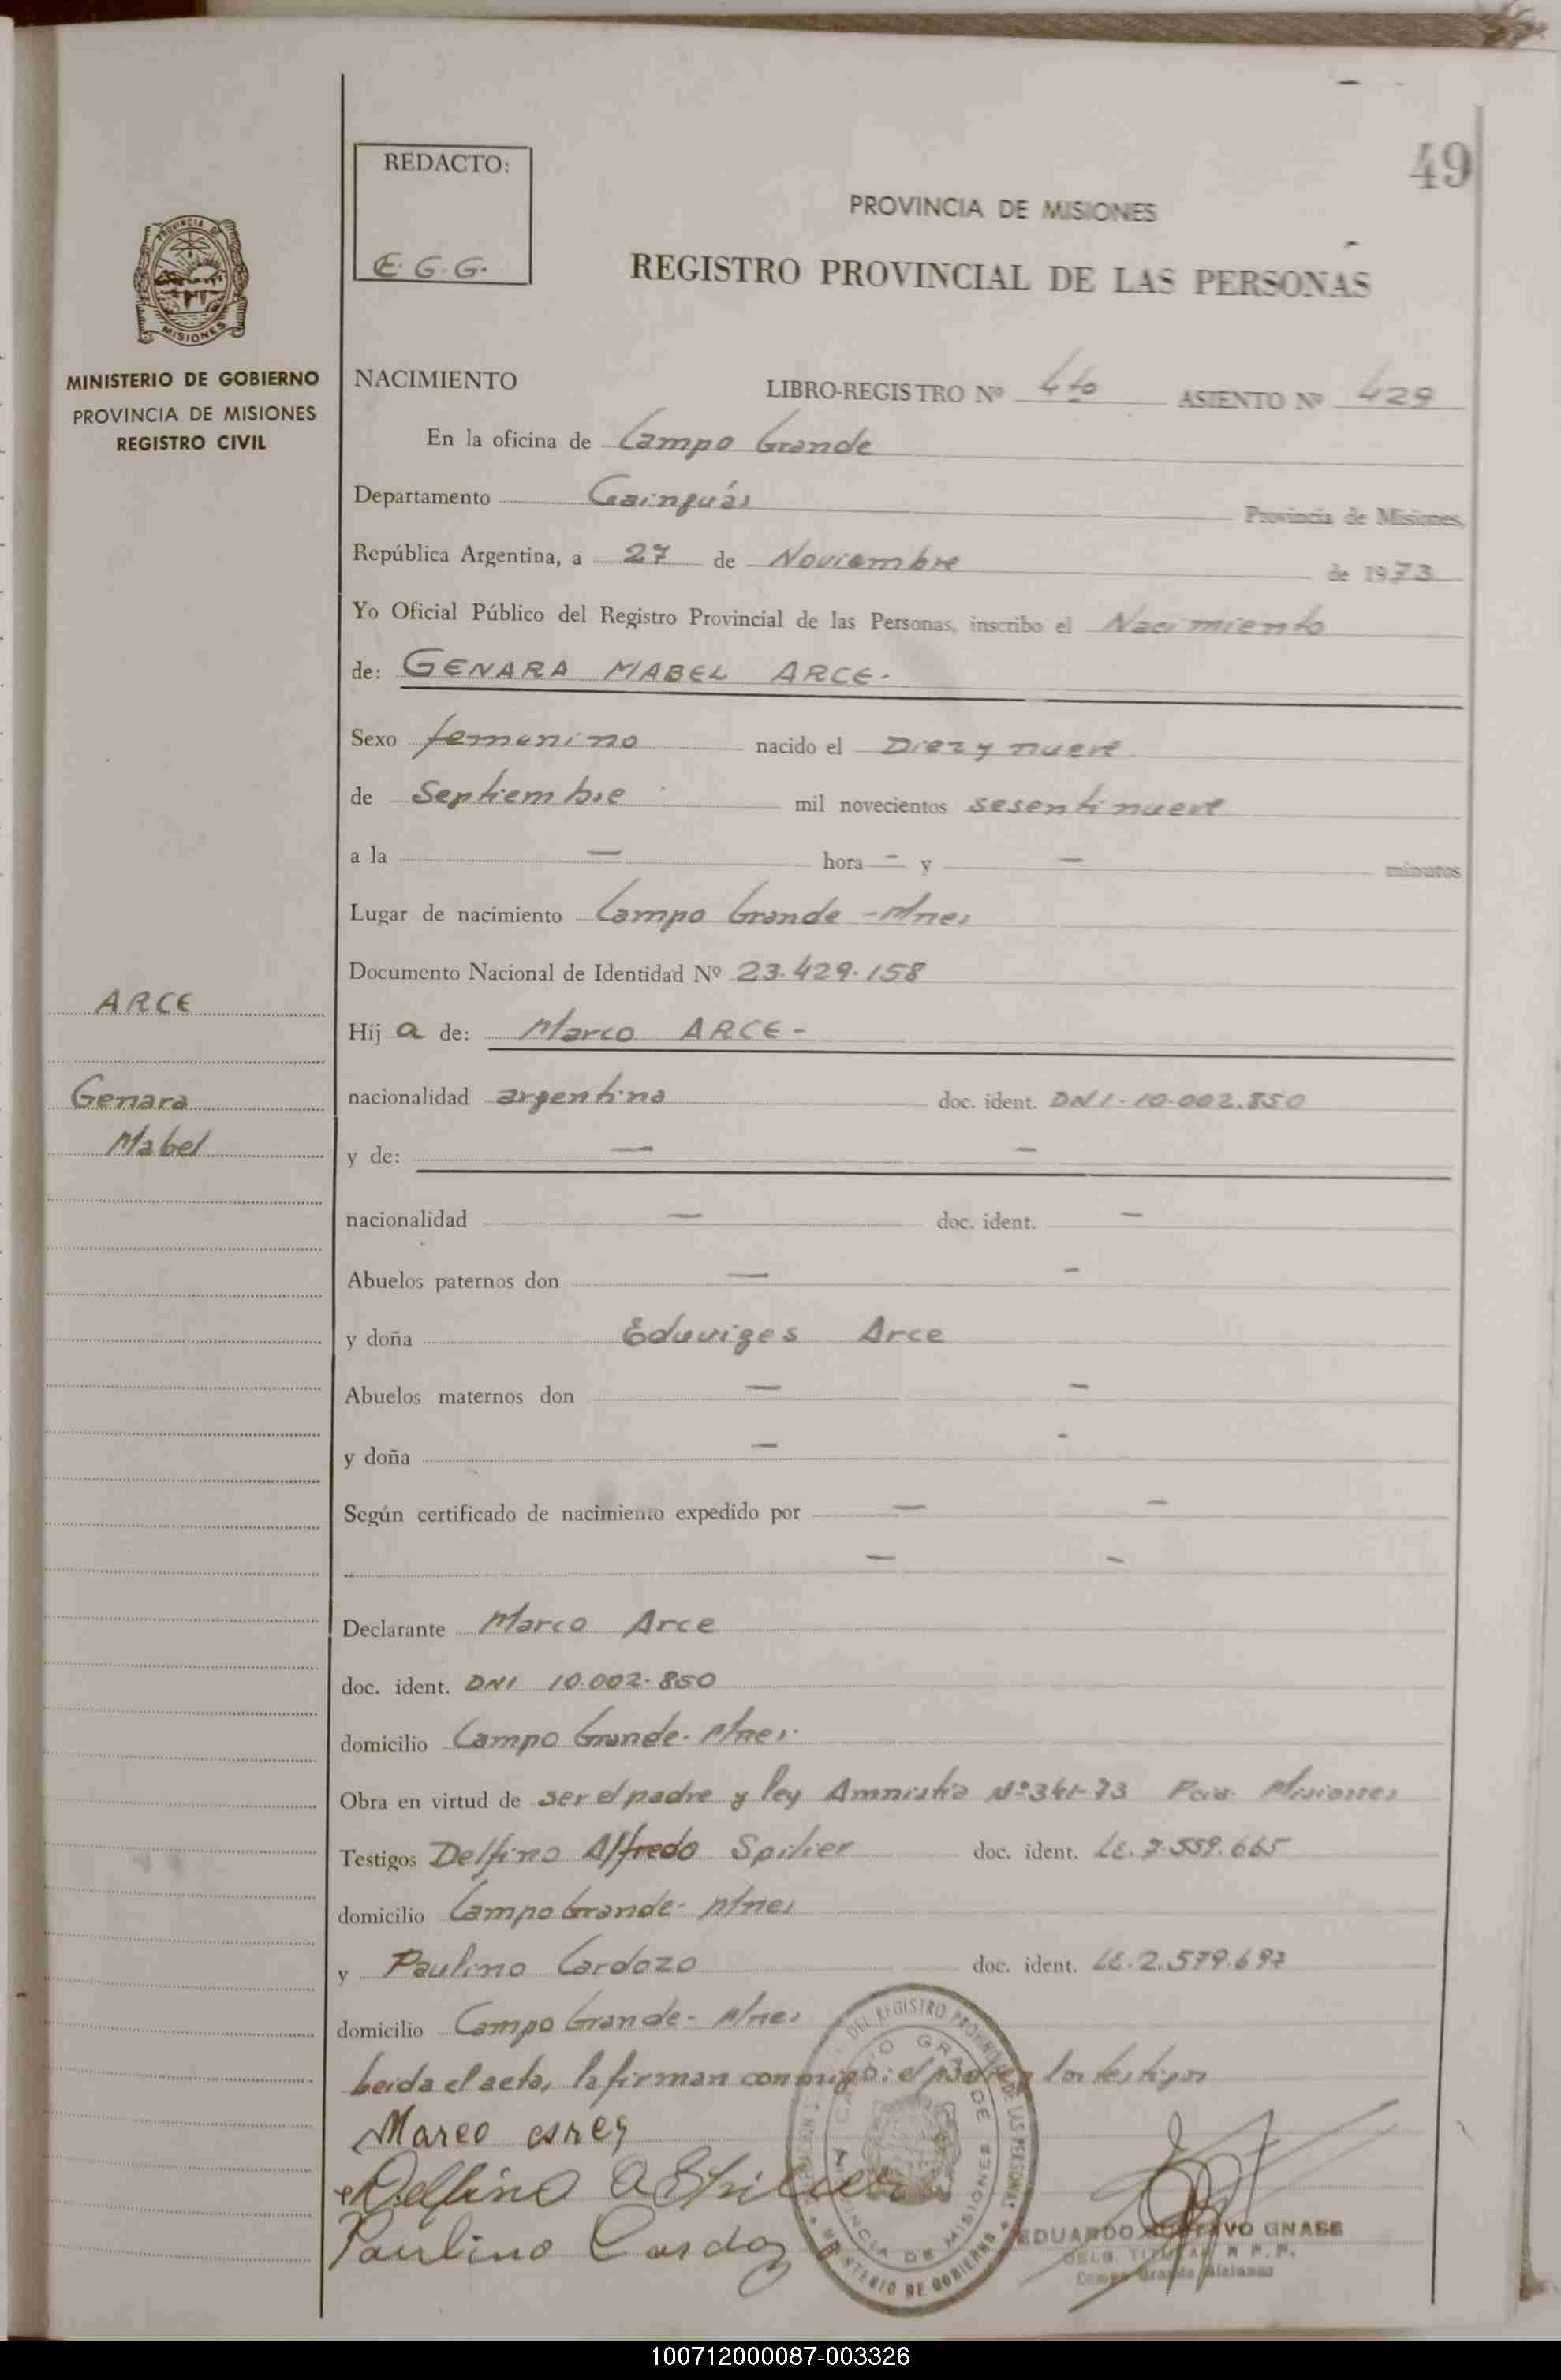 49
REDACTO:
E. G. G.
PROVINCIA DE MISIONES
REGISTRO PROVINCIAL DE LAS PERSONAS
PROVINCIA DE
MISIONES
MINISTERIO DE GOBIERNO
PROVINCIA DE MISIONES
REGISTRO CIVIL
NACIMIENTO LIBRO-REGISTRO Nº 4to ASIENTO Nº 429
En la oficina de Campo Grande
Departamento Cainguás Provincia de Misiones,
República Argentina, a 27 de Noviembre de 1973
Yo Oficial Público del Registro Provincial de las Personas, inscribo el Nacimiento
de: GENARA MABEL ARCE.
Sexo femenino nacido el Diez y nueve
de Septiembre mil novecientos sesentinueve
a la — hora - y — minutos
Lugar de nacimiento Campo Grande - Mnes
Documento Nacional de Identidad Nº 23.429.158
ARCE
Genara
Mabel
Hij a de: Marco ARCE -
nacionalidad argentina doc. ident. DNI - 10.002.850
y de: — —
nacionalidad — doc. ident. —
Abuelos paternos don — -
y doña Eduviges Arce
Abuelos maternos don — -
y doña — -
Según certificado de nacimiento expedido por — —
— -
Declarante Marco Arce
doc. ident. DNI 10.002.850
domicilio Campo Grande - Mnes.
Obra en virtud de ser el padre y ley Amnistía Nº 341-73 Pcia. Misiones
Testigos Delfino Alfredo Spilier doc. ident. LE. 7.559.665
domicilio Campo Grande - Mnes
y Paulino Cardozo doc. ident. LE. 2.579.697
domicilio Campo Grande - Mnes
Leida el acta, la firman conmigo: el padre y los testigos
Marco
Delfino A Spilier
Paulino Cardoz
DEL REGISTRO PROVINCIAL DE LAS PERSONAS
MINISTERIO DE GOBIERNO
CAMPO GRANDE
PROVINCIA DE MISIONES
EDUARDO GUSTAVO GNASS
DELEG. TITULAR R. P. P.
Campo Grande Misiones
100712000087-003326